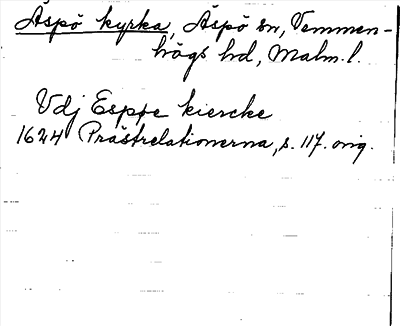 Äspö kyrka, Äspö sn, Vemmen-
högs hd, Malm. l.
Vdj Espøe kiercke
1624 Prästrelationerna, s. 117. orig.